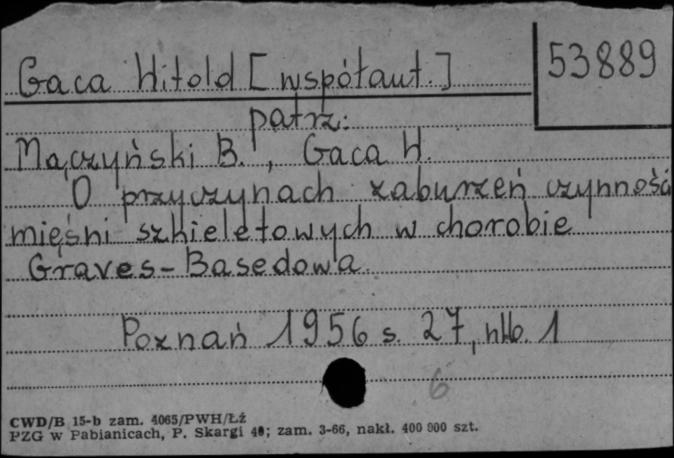 Gaca Witold [współaut.]
53889
patrz:
Mączyński B., Gaca W.
O przyczynach zaburzeń czynności
mięśni szkieletowych w chorobie
Graves-Basedowa.
Poznań 1956 s. 27, nlb. 1
6
CWD/B 15-b zam. 4065/PWH/Łź
PZG w Pabianicach, P. Skargi 40; zam. 3-66, nakł. 400 000 szt.